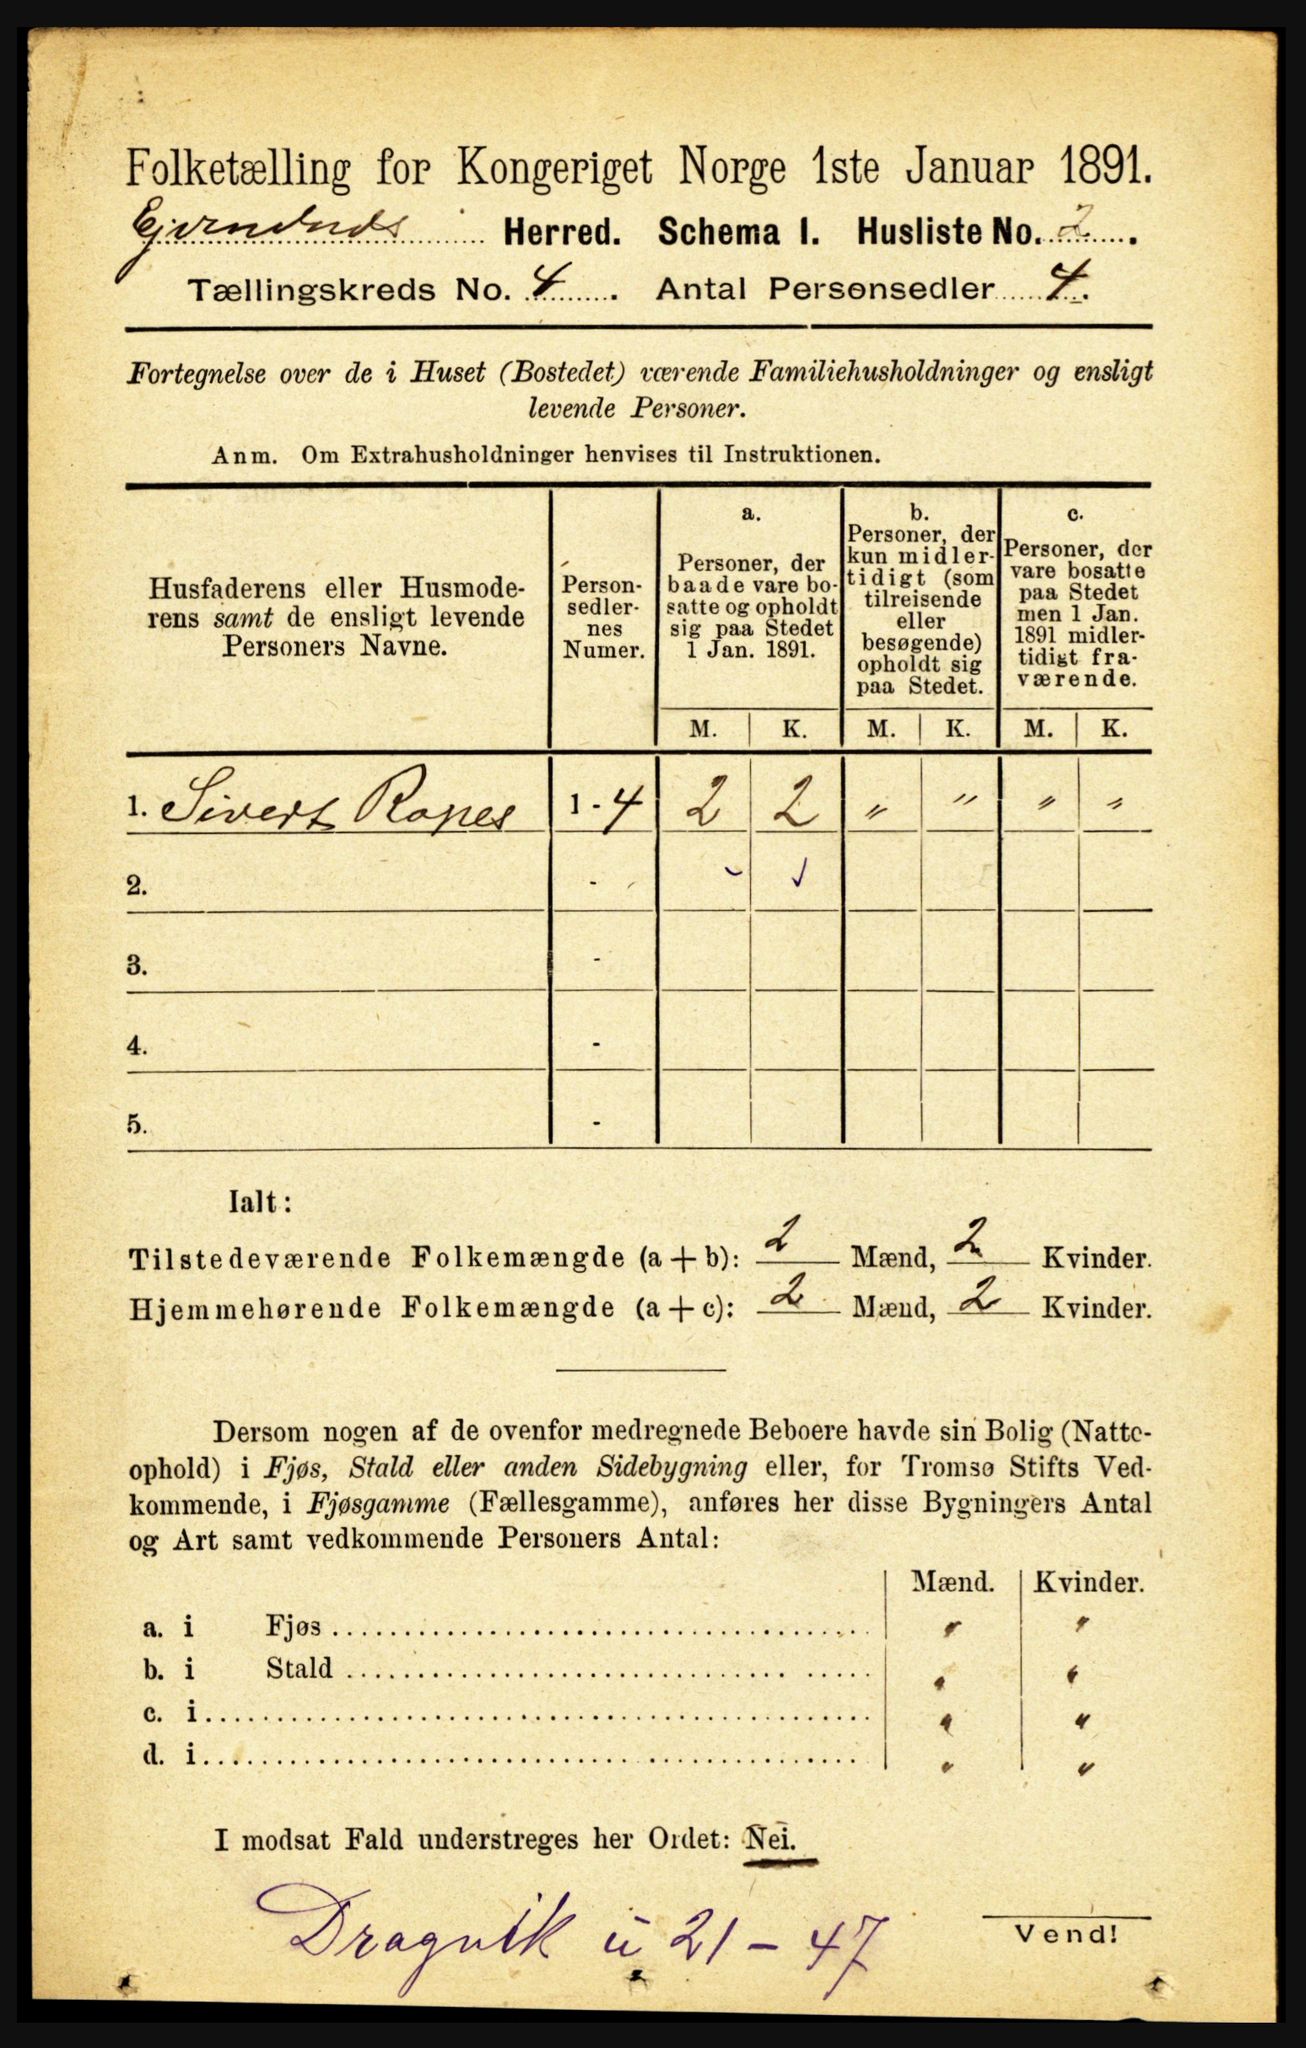 Folketælling for Kongeriget Norge 1ste Januar 1891.
Herred. Schema I. Husliste No. 2.
Tællingskreds No. 4. Antal Personsedler 4.
Fortegnelse over de i Huset (Bostedet) værende Familiehusholdninger og ensligt
levende Personer.
Anm. Om Extrahusholdninger henvises til Instruktionen.
Husfaderens eller Husmode-
rens samt de ensligt levende
Personers Navne.
Person-
sedler-
nes
Numer.
a.
Personer, der
baade vare bo-
satte og opholdt
sig paa Stedet
1 Jan. 1891.
b.
Personer, der
kun midler-
tidigt (som
tilreisende
eller
besøgende)
opholdt sig
paa Stedet.
c.
Personer, der
vare bosatte
paa Stedet
men 1 Jan.
1891 midler-
tidigt fra-
værende.
M. K. M. K. M. K.
1. Sivert Rapes 1 - 4 2 2 " " " "
2. -
3. -
4. -
5. -
Ialt:
Tilstedeværende Folkemængde (a + b): 2 Mænd, 2 Kvinder.
Hjemmehørende Folkemængde (a + c): 2 Mænd, 2 Kvinder.
Dersom nogen af de ovenfor medregnede Beboere havde sin Bolig (Natte-
ophold) i Fjøs, Stald eller anden Sidebygning eller, for Tromsø Stifts Ved-
kommende, i Fjøsgamme (Fællesgamme), anføres her disse Bygningers Antal
og Art samt vedkommende Personers Antal:
Mænd. Kvinder.
a. i Fjøs " "
b. i Stald " "
c. i " "
d. i " "
I modsat Fald understreges her Ordet: Nei.
Dragvik u 21 - 47
Vend!